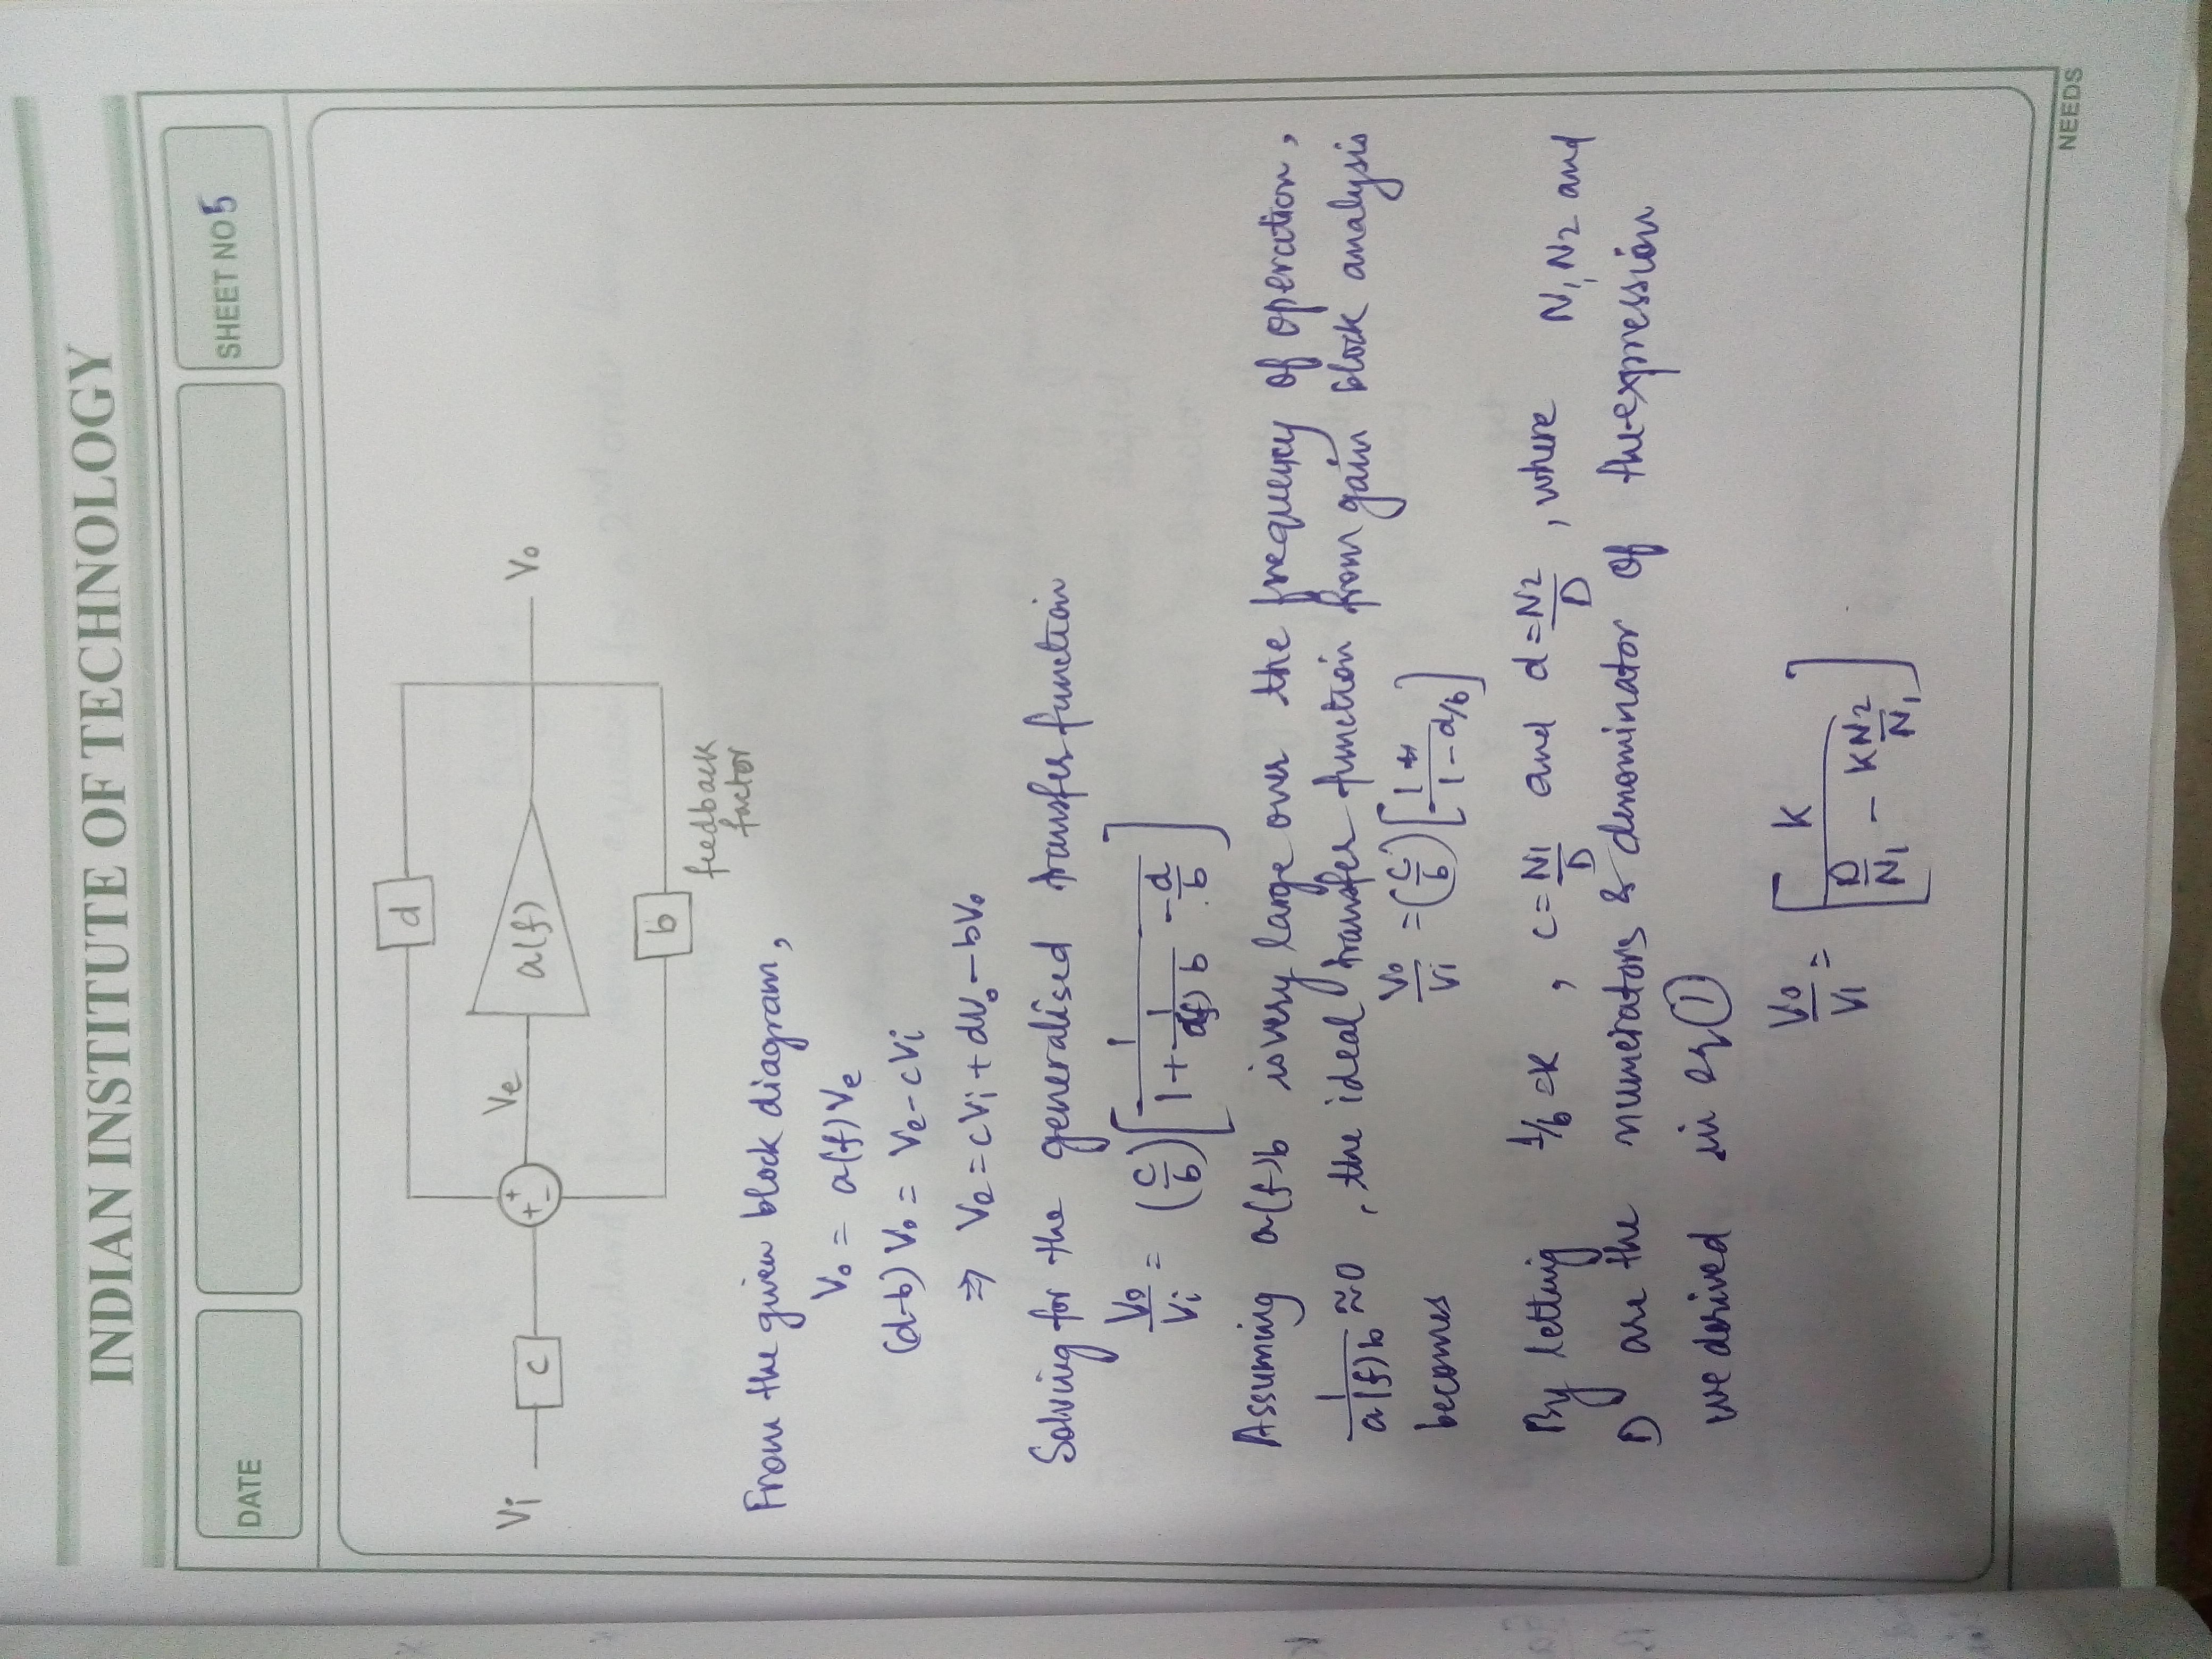 INDIAN INSTITUTE OF TECHNOLOGY
DATE
SHEET NO 5
d
Vi
c
+
+
−
Ve
a(f)
Vo
b
feedback
factor
From the given block diagram,
Vo = a(f)Ve
(d-b) Vo = Ve - cVi
⇒ Ve = cVi + dVo - bVo
Solving for the generalised transfer function
Vo/Vi = (c/b) [1/(1 + 1/(a(f) b) - d/b)]
Assuming a(f)b is very large over the frequency of operation,
1/(a(f)b) ≈ 0 , the ideal transfer function from gain block analysis
becomes Vo/Vi = (c/b) [1/(1 - d/b)]
By letting 1/b = K , c = N1/D and d = N2/D , where N1, N2 and
D are the numerators & denominator of the expression
we derived in eq ①
Vo/Vi = [K/(D/N1 - K N2/N1)]
NEEDS